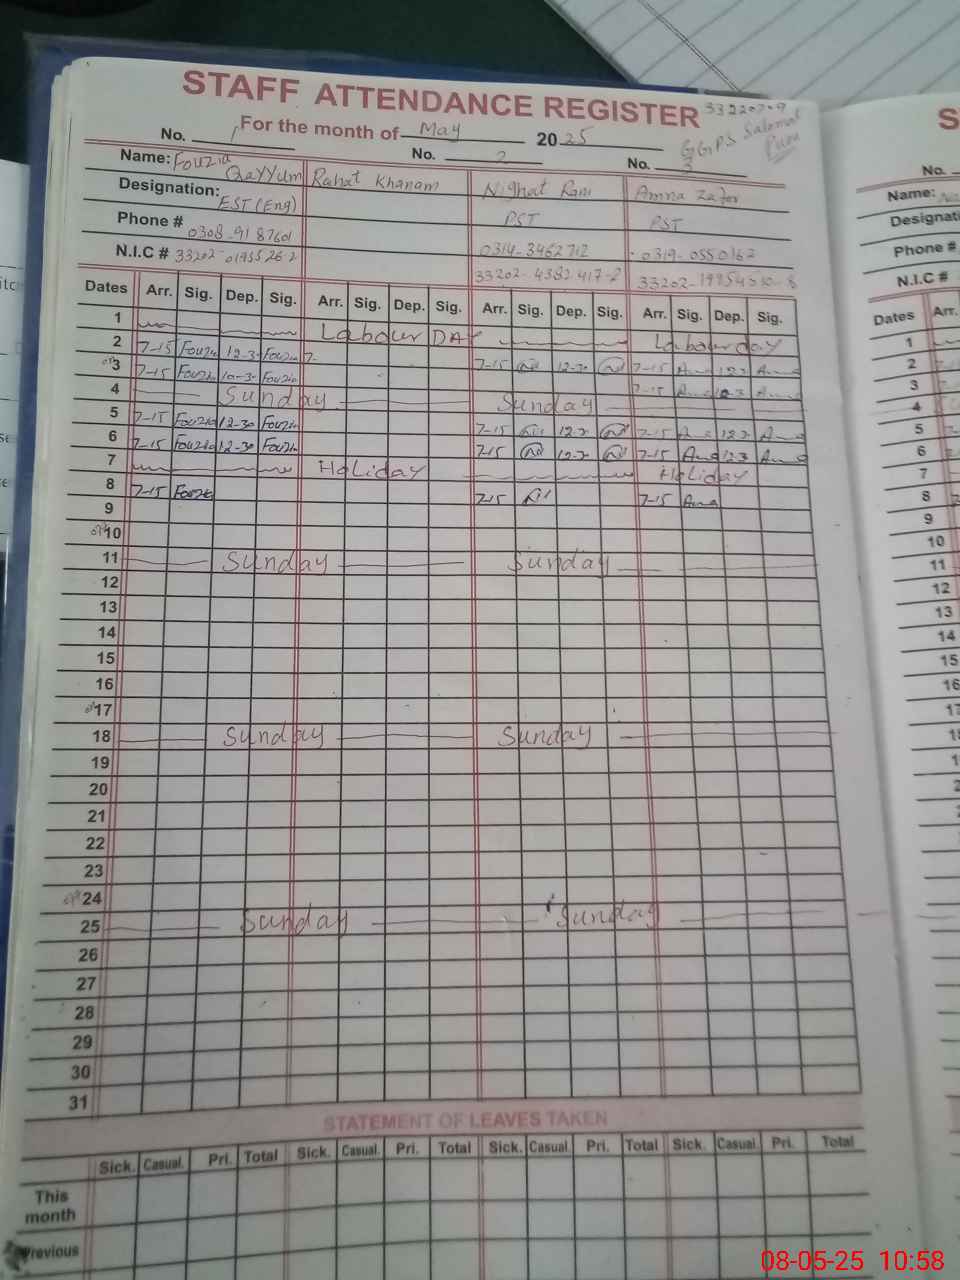 STAFF ATTENDANCE REGISTER 33220709
No. 1 For the month of May 2025 GGPS Salamat Pura
No. 2 No. 3
Name: Fouzia Qayyum Rahat Khanam Nighat Rani Amna Zafar
Designation: EST (Eng) PST PST
Phone # 0308-9187601 0314-3462712 0319-0550162
N.I.C #
Dates Arr. Sig. Dep. Sig. Arr. Sig. Dep. Sig. Arr. Sig. Dep. Sig. Arr. Sig. Dep. Sig.
1 Labour DAY Labour day
2 7-15 Fouzia 12-30 Fouzia 7- 7-15 12-30 7-15 Amna 12-3 Amna
3 7-15 Fouzia 10-30 Fouzia 7-15 Amna Amna
4 Sunday Sunday
5 7-15 Fouzia 12-30 Fouzia 7-15 12-3 7-15 Amna 12-3 Amna
6 7-15 Fouzia 12-30 Fouzia 7-15 12-3 7-15 Amna 12-3 Amna
7 Holiday Holiday
8 7-15 Fouzia 7-15 7-15 Amna
9
10
11 Sunday Sunday
12
13
14
15
16
17
18 Sunday Sunday
19
20
21
22
23
24
25 Sunday Sunday
26
27
28
29
30
31
STATEMENT OF LEAVES TAKEN
Sick. Casual. Pri. Total Sick. Casual. Pri. Total Sick. Casual. Pri. Total Sick. Casual. Pri. Total
This month
Previous
No.
Name:
Designati
Phone #
N.I.C #
Dates Arr.
1
2
3
4
5
6
7
8
9
10
11
12
13
14
15
08-05-25 10:58